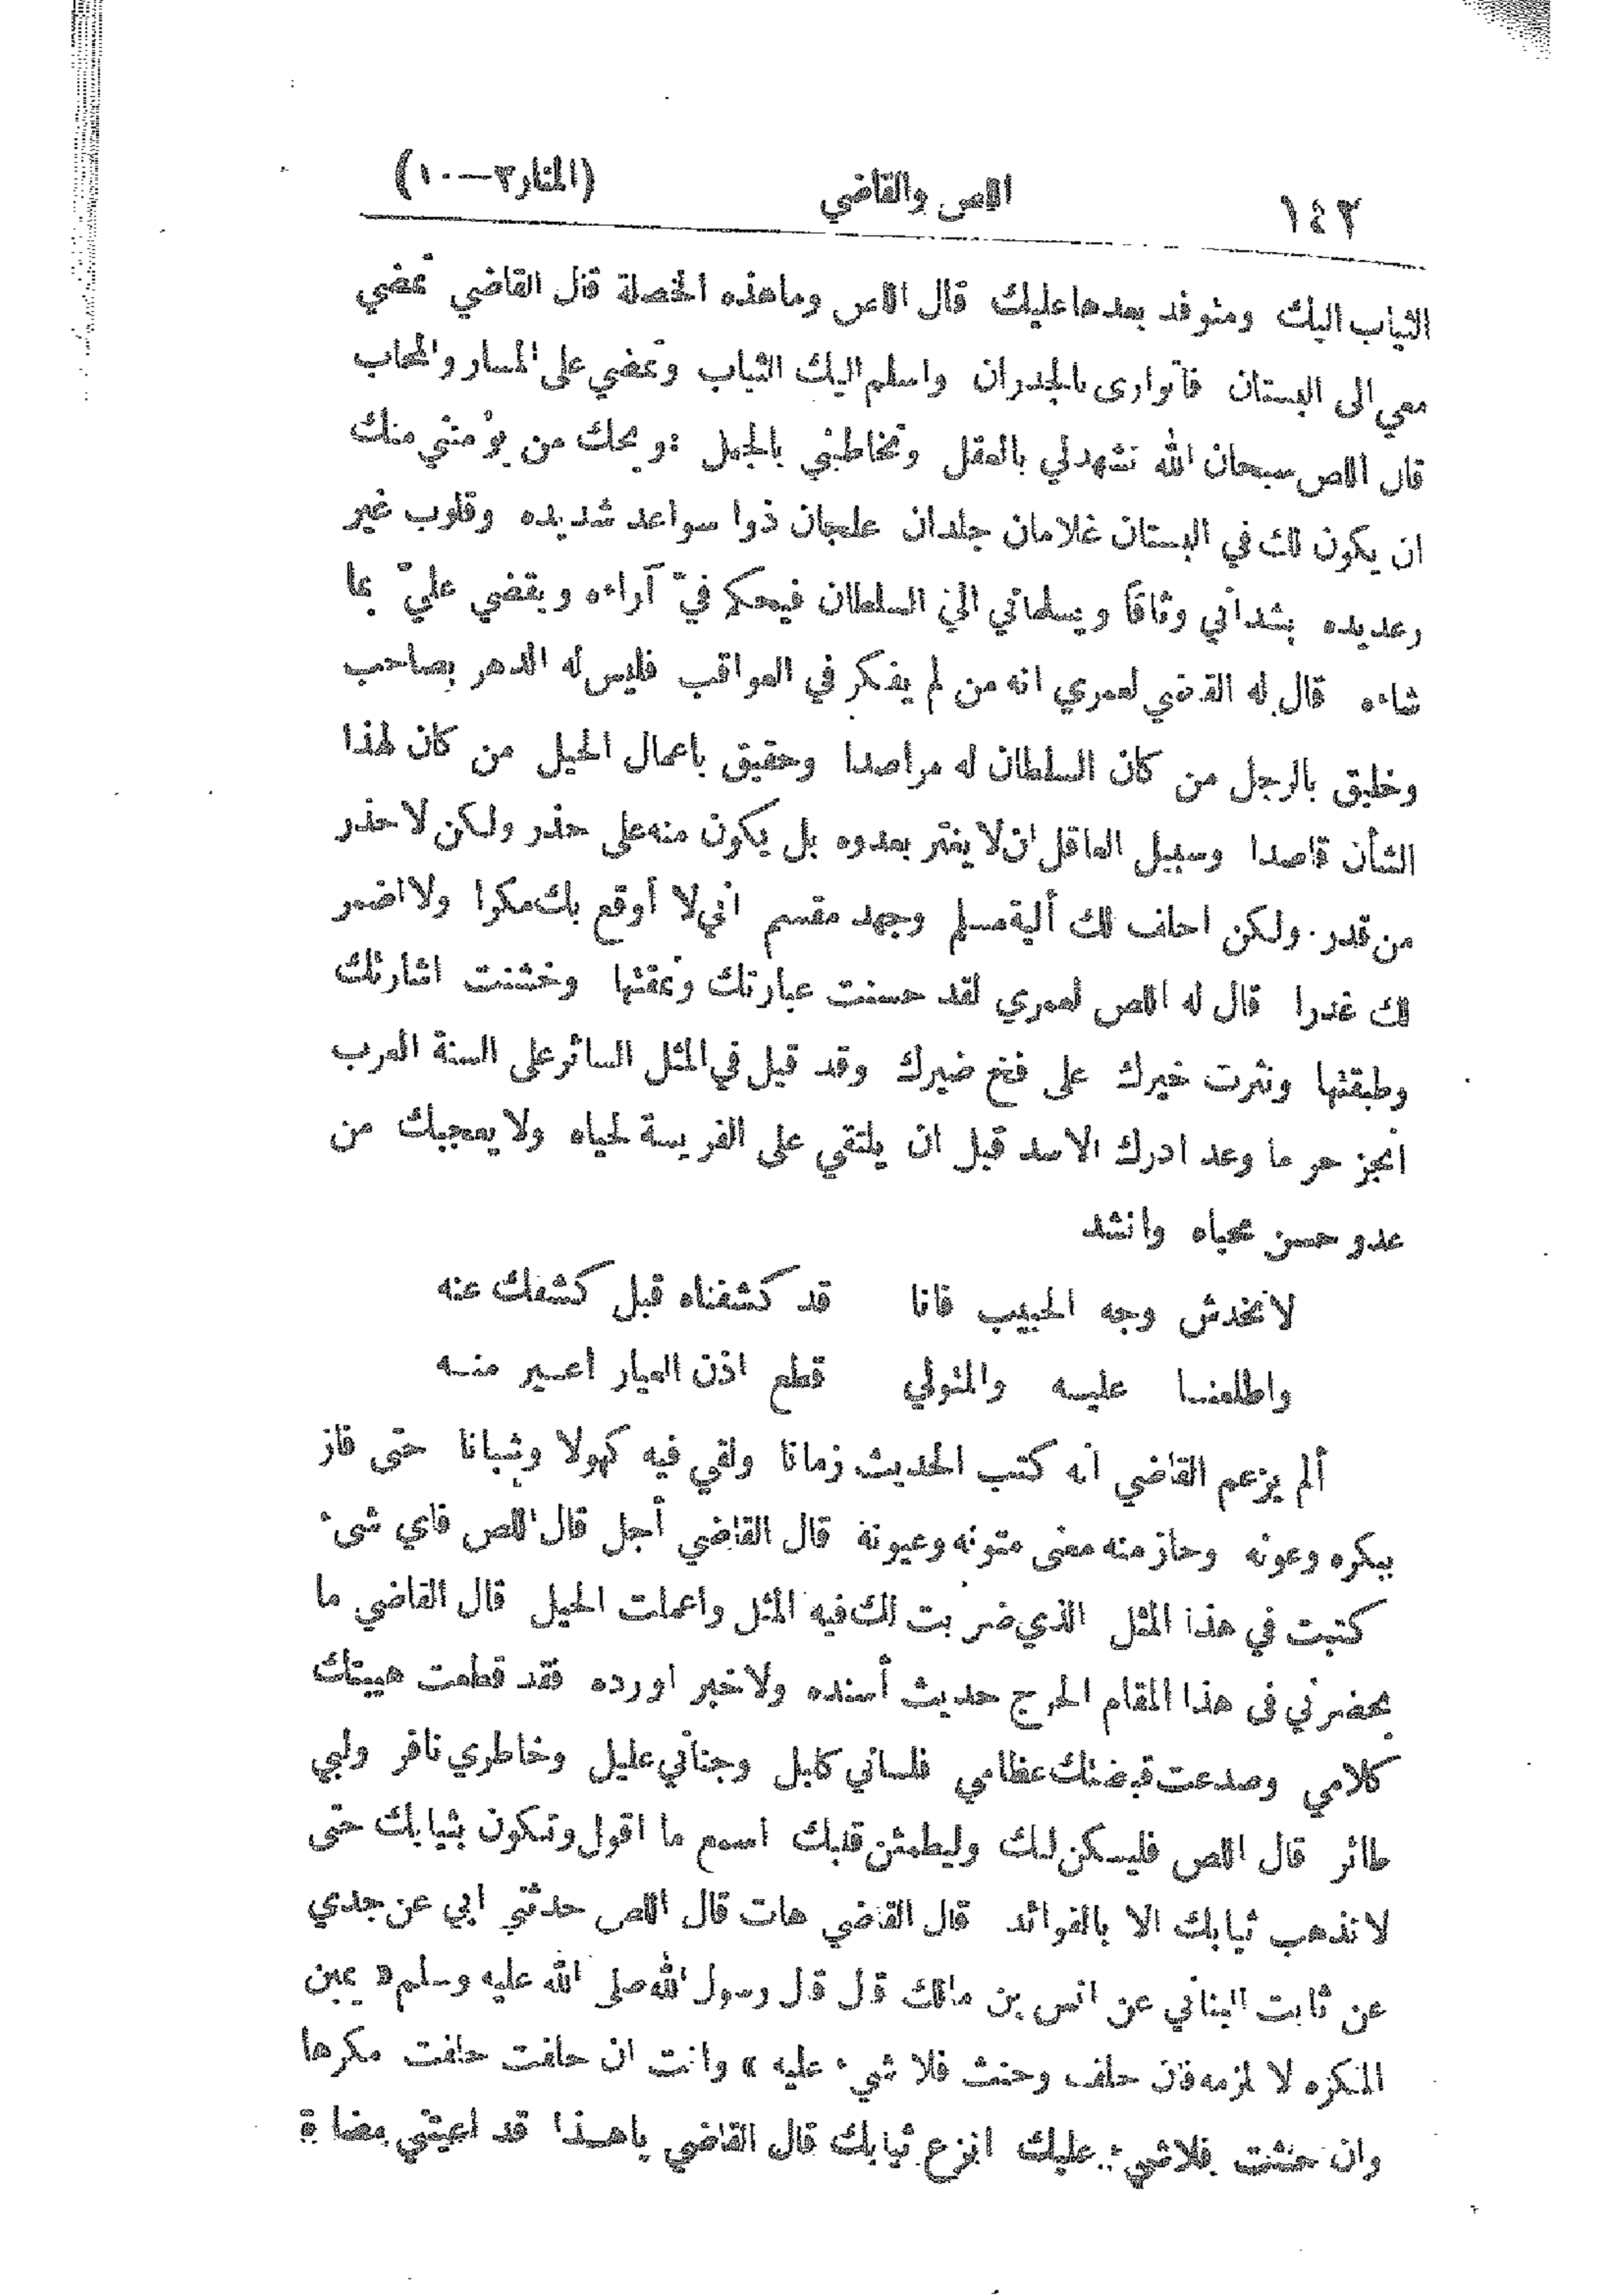 ١٤٢ اللص والقاضي (المنار ٣—١٠)
الثياب اليك ومتوفد بعدها عليك قال اللص وما هذه الخصلة قال القاضي تمضي
معي الى البستان فأتوارى بالجدران واسلم اليك الثياب وتمضي على المسار والمحاب
قال اللص سبحان الله تشهد لي بالعقل وتخاطبني بالجهل : ويحك من يؤمنني منك
ان يكون لك في البستان غلامان جلدان علجان ذوا سواعد شديده وقلوب غير
رعديده يشداني وثاقاً ويسلماني الى السلطان فيحكم فيّ آراءه ويقضي عليّ بما
شاءه قال له القاضي لعمري انه من لم يفكر في العواقب فليس له الدهر بصاحب
وخليق بالوجل من كان السلطان له مراصدا وحقيق باعمال الحيل من كان لهذا
الشأن قاصدا وسبيل العاقل ان لا يغتر بعدوه بل يكون منه على حذر ولكن لا حذر
من قدر . ولكن احلف لك ألية مسلم وجهد مقسم اني لا أوقع بك مكرا ولا اضمر
لك غدرا قال له اللص لعمري لقد حسنت عبارتك ونمقتها وخشنت اشارتك
وطبقتها ونثرت خيرك على فخ ضيرك وقد قيل في المثل السائر على السنة العرب
انجز حر ما وعد ادرك الاسد قبل ان يلتقي على الفريسة لحياه ولا يعجبك من
عدو حسن محياه وانشد
لا تخدش وجه الحبيب فانا قد كشفناه قبل كشفك عنه
واطلعنا عليه والمتولي قطع اذن العيار اعير منه
ألم يزعم القاضي انه كتب الحديث زمانا ولقي فيه كهولا وشبانا حتى فاز
ببكره وعونه وحاز منه معنى متونه وعيونه قال القاضي أجل قال اللص فاي شيء
كتبت في هذا المثل الذي ضربت لك فيه المثل واعملت الحيل قال القاضي ما
يحضرني في هذا المقام الحرج حديث أسنده ولا خبر اورده فقد قطعت هيبتك
كلامي وصدعت قبضتك عظامي فلساني كليل وجناني عليل وخاطري نافر ولبي
طائر قال اللص فليسكن لبك وليطمئن قلبك اسمع ما اقول وتكون بثيابك حتى
لا تذهب ثيابك الا بالفوائد قال القاضي هات قال اللص حدثني ابي عن جدي
عن ثابت البناني عن انس بن مالك قال قال رسول الله صلى الله عليه وسلم « يمين
المكره لا تلزمه فان حلف وحنث فلا شيء عليه » وانت ان حلفت حلفت مكرها
وان حنثت فلا شيء عليك انزع ثيابك قال القاضي يا هذا قد اعييتني مضاءة